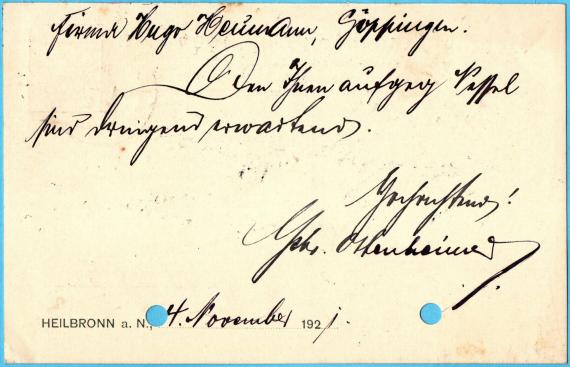 Firma Hugo Neumann, Göppingen.
Den Ihnen aufgeg Kessel
sind dringend erwartend.
Hochachtend!
Gebr. Ottenheimer
HEILBRONN a. N., 4. November 1921.